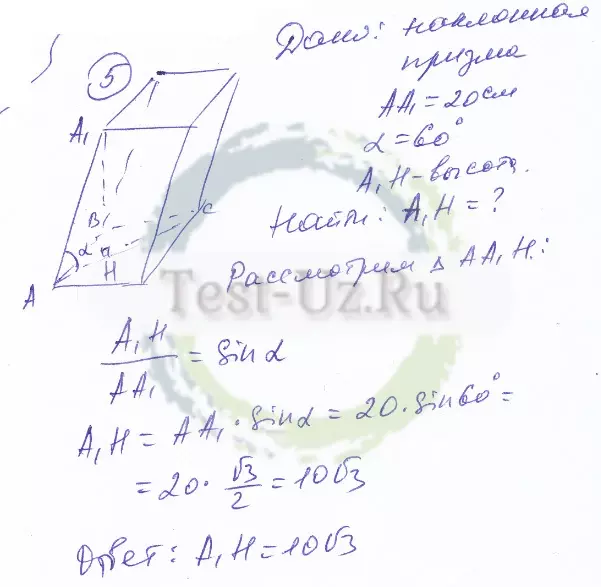 5
Дано: наклонная
призма
AA₁ = 20 см
α = 60°
A₁H - высота.
Найти: A₁H = ?
Рассмотрим Δ AA₁H:
A₁
B
C
α
H
A
Test-Uz.Ru
A₁H / AA₁ = sin α
A₁H = AA₁ · sin α = 20 · sin 60° =
= 20 · √3/2 = 10√3
Ответ: A₁H = 10√3